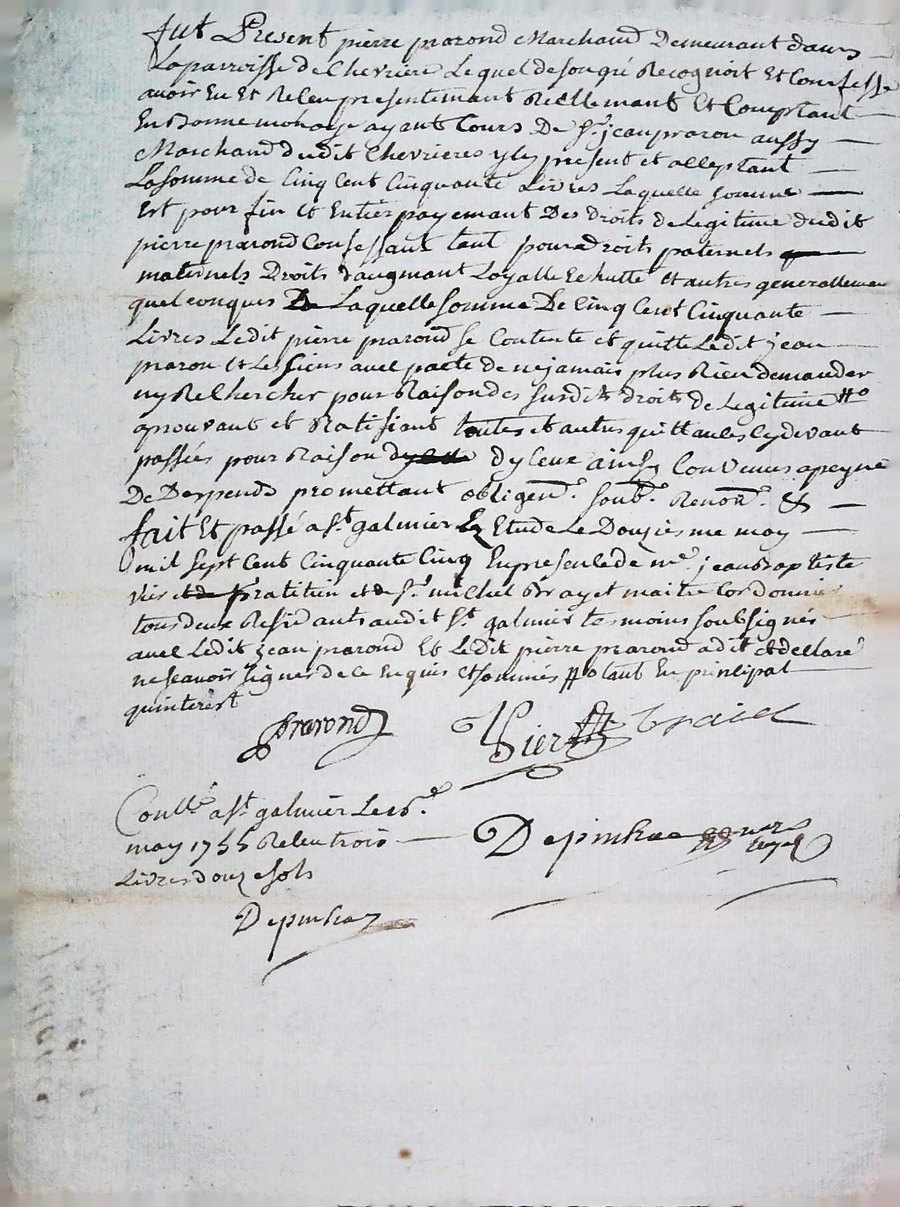 fut Present pierre prarond Marchand Demeurant dans
La parroisse de Chevriere Lequel de son gré Recognoit Et Confesse
avoir Eu Et Receu presentemant Reellemant Et Comptant
En bonne monoye ayant Cours De Sr. jean praron aussy
Marchand dudit Chevrieres ycy present et acceptant
La somme de Cinq Cent Cinquante Livres Laquelle somme
Est pour fin Et Entier payemant Des droits de Legitime dudit
pierre prarond Confessant tant pour droits paternels
maternels Droits daugmant Loyalle Echutte Et autres generallemen
quelconques Laquelle somme De Cinq Cent Cinquante
Livres Ledit pierre prarond se Contente et quitte Ledit jean
praron Et Les siens avec pacte de ne jamais plus Rien demander
ny Rechercher pour Raison des susdits droits de Legitime #o
aprouvant et Ratifiant toutes et autres quittances cy devant
passées pour Raison dyceux ainsy Convenus a peyne
De Despends promettant obligent. soub. Renon. &
fait Et passé a St galmier En Etude Le Douzies me may
mil sept Cent Cinquante Cinq En presence de me. jean Baptiste
vier pratitien et de Sr. michel Brayet maitre Cordonnier
tous deux Residants audit St. galmier temoins soubsignés
avec Ledit jean prarond Et Ledit pierre prarond a dit et declaré
ne scavoir signer de ce Enquis Et sommés #o tant En principal
quinterest
Prarond
Vier Braiet
Conllé a St galmier Le
may 1755 Receu trois
Livres douze sols
Depinhac
Depinhac